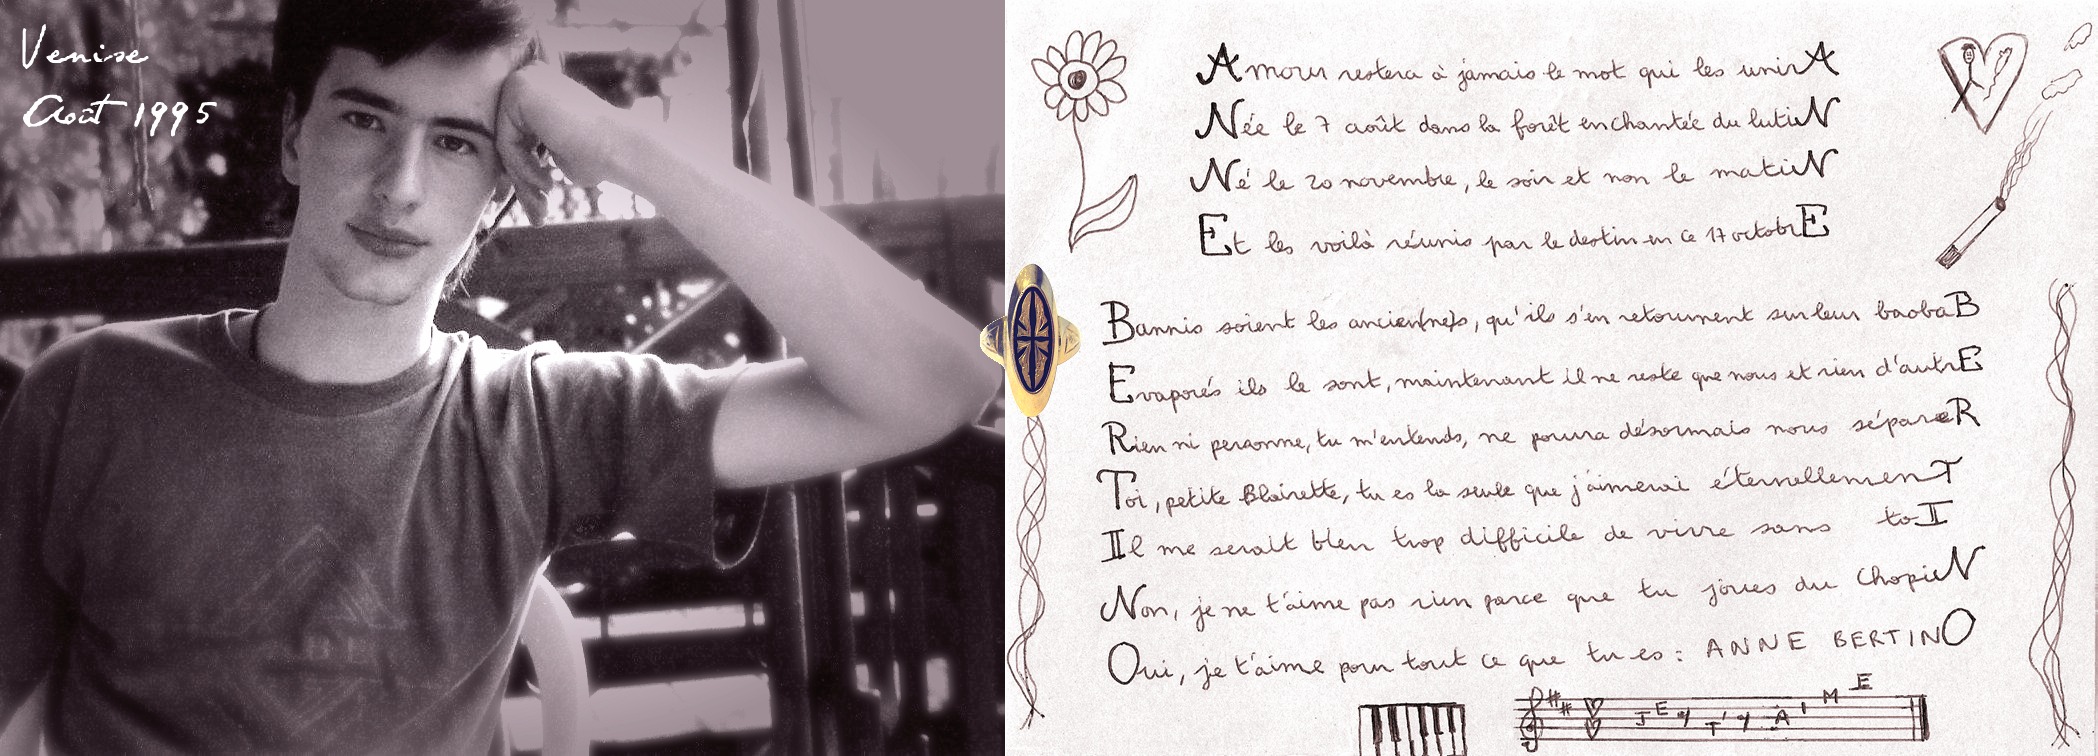 Venise
Août 1995
Amour restera à jamais le mot qui les unirA
Née le 7 août dans la forêt enchantée du lutiN
Né le 20 novembre, le soir et non le matiN
Et les voilà réunis par le destin en ce 17 octobrE
Bannis soient les ancien(ne)s, qu'ils s'en retournent sur leur baobaB
Evaporés ils le sont, maintenant il ne reste que nous et rien d'autrE
Rien ni personne, tu m'entends, ne pourra désormais nous sépareR
Toi, petite Blairette, tu es la seule que j'aimerai éternellemenT
Il me serait bien trop difficile de vivre sans toI
Non, je ne t'aime pas rien parce que tu joues du ChopiN
Oui, je t'aime pour tout ce que tu es : ANNE BERTINO
JE T'AIME